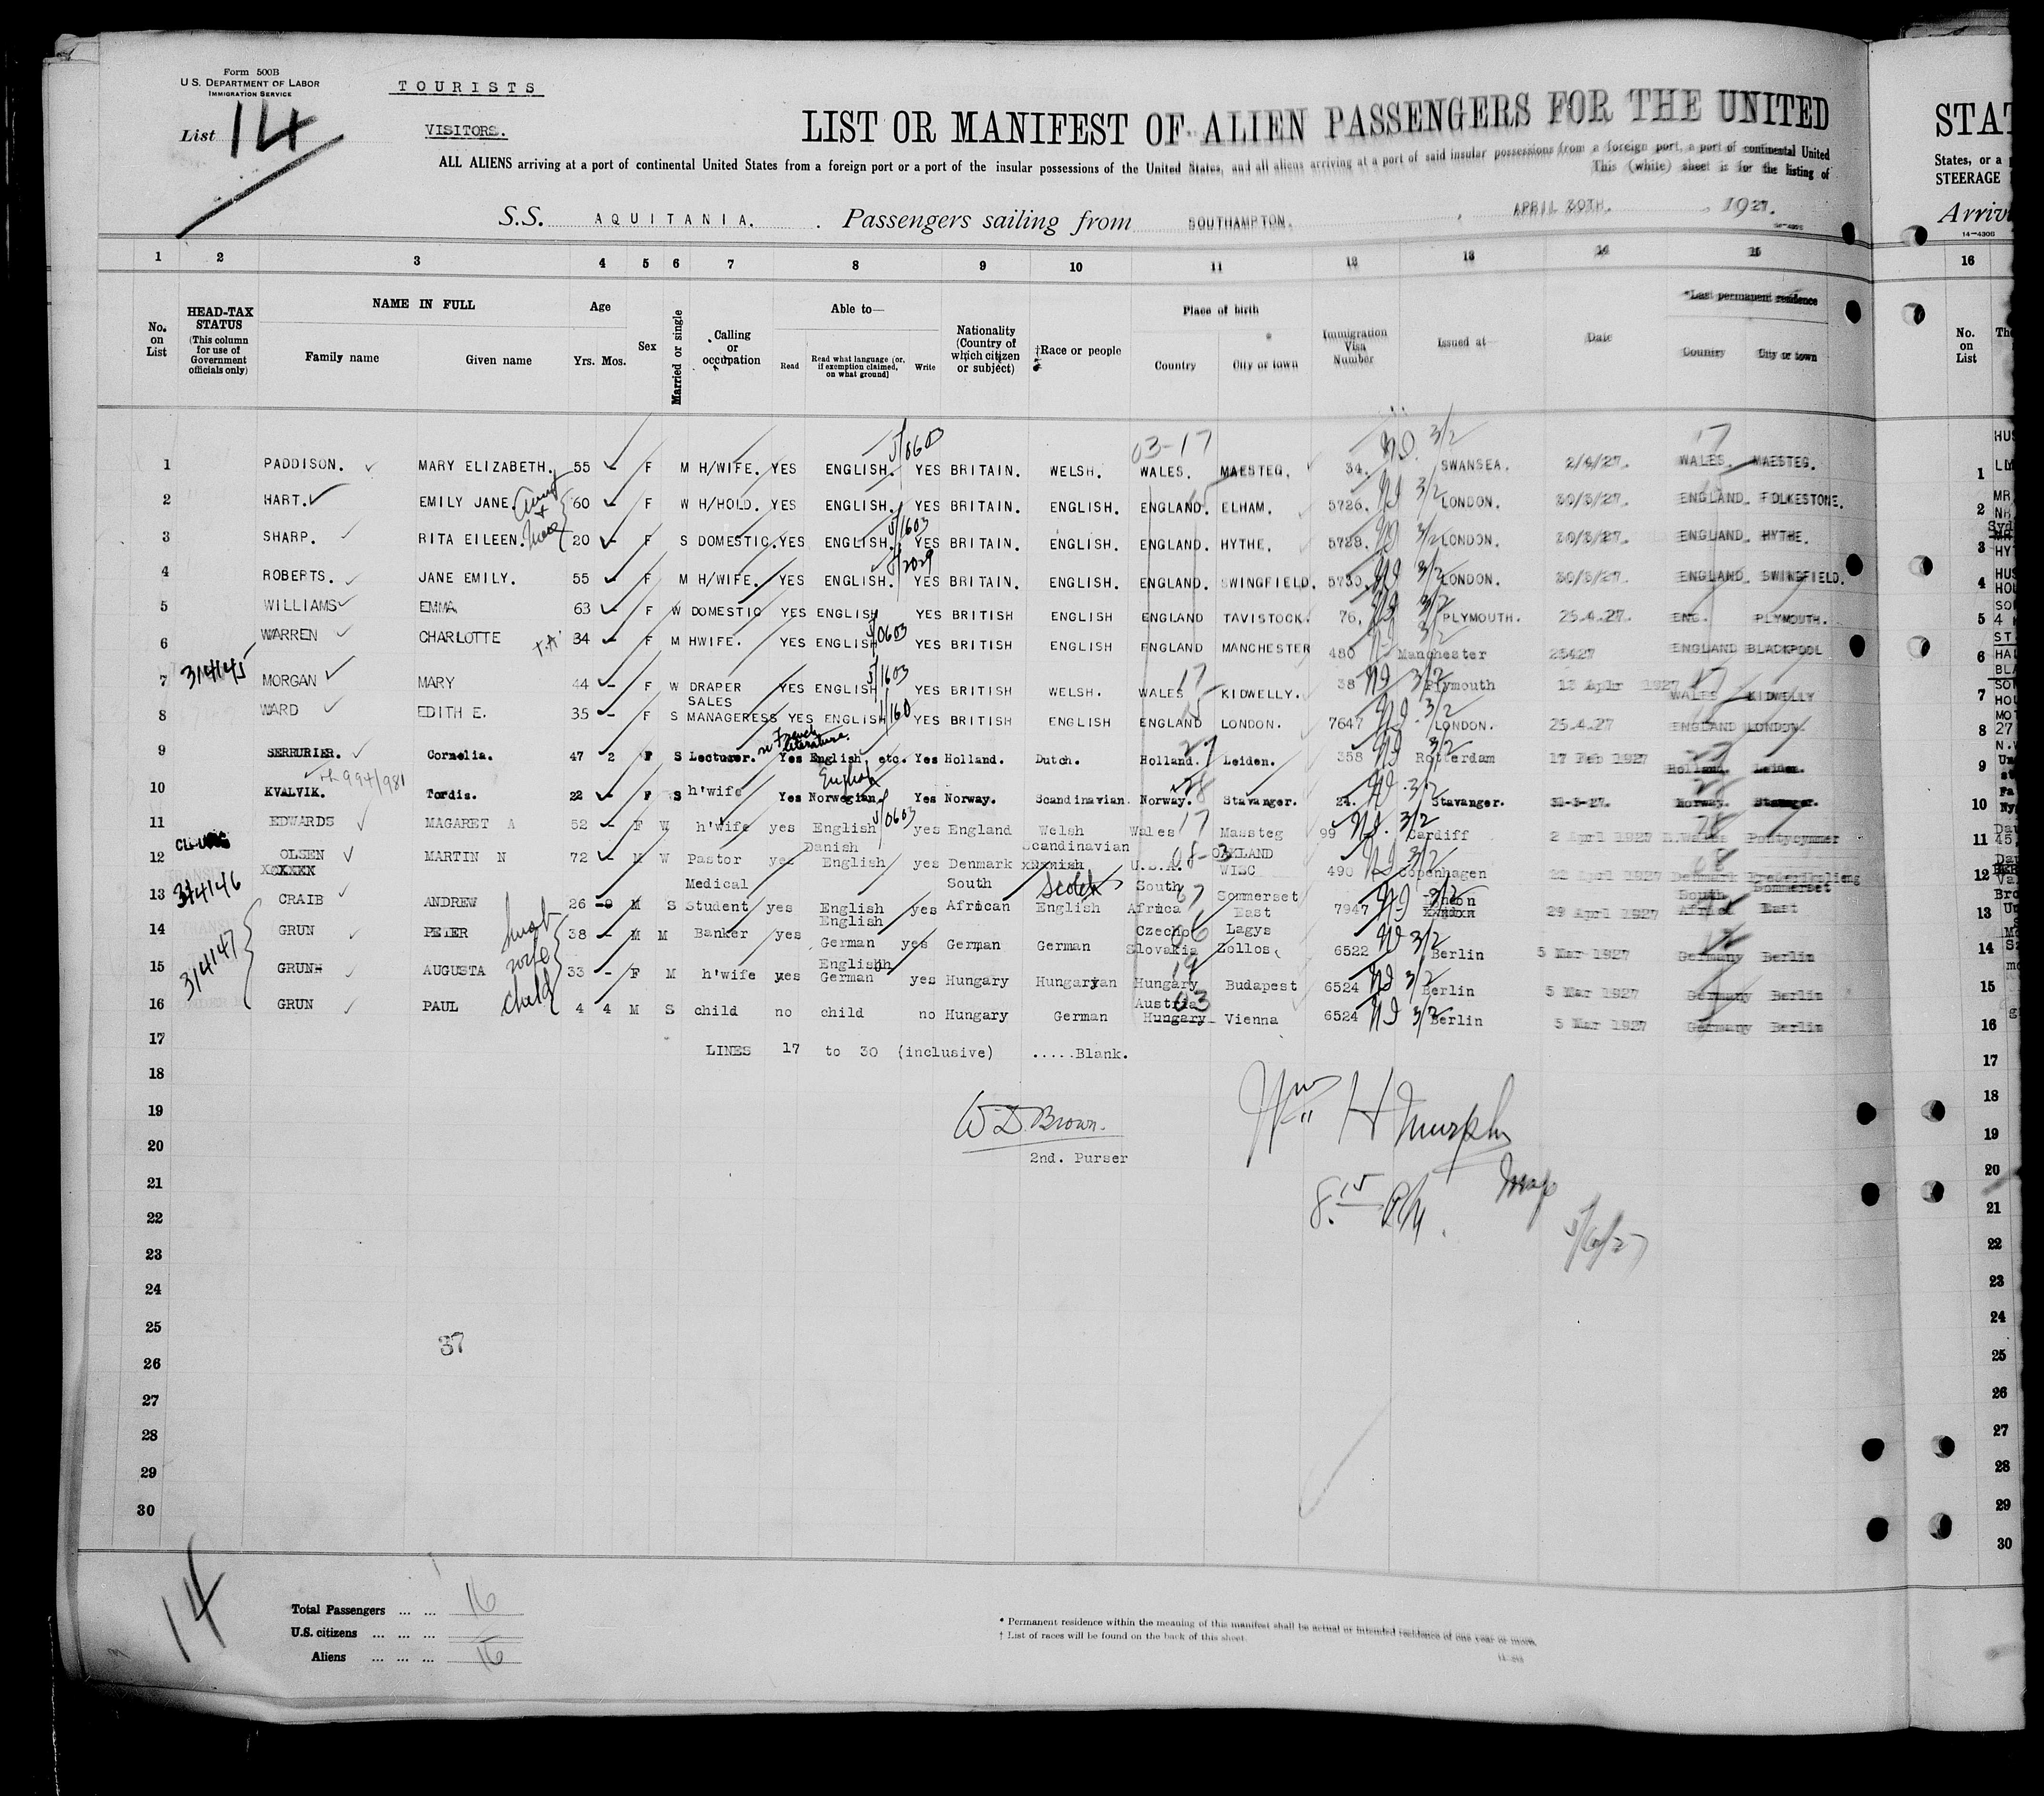 Form 500B
U.S. DEPARTMENT OF LABOR
IMMIGRATION SERVICE
TOURISTS
List 14
VISITORS.
LIST OR MANIFEST OF ALIEN PASSENGERS FOR THE UNITED
STAT
ALL ALIENS arriving at a port of continental United States from a foreign port or a port of the insular possessions of the United States, and all aliens arriving at a port of said insular possessions from a foreign port, a port of continental United
States, or a
This (white) sheet is for the listing of
STEERAGE
S.S. AQUITANIA. Passengers sailing from SOUTHAMPTON. , APRIL 30TH. , 1927.
Arriv
14-430B
1 2 3 4 5 6 7 8 9 10 11 12 13 14 15 16
No. on List
HEAD-TAX STATUS (This column for use of Government officials only)
NAME IN FULL
Family name Given name
Age
Yrs. Mos.
Sex
Married or single
Calling or occupation
Able to—
Read
Read what language (or, if exemption claimed, on what ground)
Write
Nationality (Country of which citizen or subject)
†Race or people
Place of birth
Country City or town
Immigration Visa Number
Issued at—
Date
*Last permanent residence
Country City or town
No. on List
The
1 PADDISON. MARY ELIZABETH. 55 - F M H/WIFE. YES ENGLISH. YES BRITAIN. WELSH. 03-17 WALES. MAESTEG. 34. 3/2 SWANSEA. 2/4/27. 17 WALES. MAESTEG. 1
2 HART. EMILY JANE. 60 F W H/HOLD. YES ENGLISH. YES BRITAIN. ENGLISH. ENGLAND. ELHAM. 5726. 3/2 LONDON. 30/3/27. ENGLAND. FOLKESTONE. 2
3 SHARP. RITA EILEEN. 20 - F S DOMESTIC. YES ENGLISH. 5/1603 YES BRITAIN. ENGLISH. ENGLAND. HYTHE. 5729. 3/2 LONDON. 30/3/27. ENGLAND HYTHE. 3
4 ROBERTS. JANE EMILY. 55 - F M H/WIFE. YES ENGLISH. YES BRITAIN. ENGLISH. ENGLAND. SWINGFIELD. 5730. 3/2 LONDON. 30/3/27. ENGLAND SWINGFIELD. 4
5 WILLIAMS EMMA 63 - F W DOMESTIC YES ENGLISH YES BRITISH ENGLISH ENGLAND TAVISTOCK. 76, 3/2 PLYMOUTH. 25.4.27. ENG. PLYMOUTH. 5
6 WARREN CHARLOTTE 34 - F M HWIFE. YES ENGLISH YES BRITISH ENGLISH ENGLAND MANCHESTER 480 3/2 Manchester 25427 ENGLAND BLACKPOOL 6
314145
7 MORGAN MARY 44 - F W DRAPER YES ENGLISH 5/1603 YES BRITISH WELSH. 17 WALES KIDWELLY. 38 3/2 Plymouth 12 Aplr 1927 17 WALES KIDWELLY 7
8 WARD EDITH E. 35 - F S SALES MANAGERESS YES ENGLISH YES BRITISH ENGLISH ENGLAND LONDON. 7647 3/2 LONDON. 25.4.27 ENGLAND LONDON. 8
9 SERRURIER. Cornelia. 47 2 F S Lecturer. in French literature. Yes English, etc. Yes Holland. Dutch. Holland. Leiden. 358 3/2 Rotterdam 17 Feb 1927 Holland. Leiden. 9
994/981
10 KVALVIK. Tordis. 22 - F S h'wife Yes English Norwegian Yes Norway. Scandinavian. 28 Norway. Stavanger. 24. 3/2 Stavanger. 31-3-27. Norway. Stavanger. 10
11 EDWARDS MAGARET A 52 - F W h'wife yes English yes England Welsh Wales 17 Massteg 99 3/2 Cardiff 2 April 1927 Pontycymmer 11
12 OLSEN MARTIN N 72 - M W Pastor yes Danish English yes Denmark Scandinavian U.S.A. OAKLAND WISC 490 3/2 Copenhagen 22 April 1927 Denmark 12
314146
13 CRAIB ANDREW 26 -9 M S Medical Student yes English yes South African English Scotch South Africa 67 Sommerset East 7947 3/2 London 29 April 1927 South Africa Sommerset East 13
314147
14 GRUN PETER husb 38 - M M Banker yes English German yes German German Czecho Slovakia Lagys Zollos 6522 3/2 Berlin 5 Mar 1927 Germany Berlin 14
15 GRUN AUGUSTA wife 33 - F M h'wife yes English German yes Hungary Hungaryian Hungary Budapest 6524 3/2 Berlin 5 Mar 1927 Germany Berlin 15
16 GRUN PAUL child 4 4 M S child no child no Hungary German Austria Hungary 03 Vienna 6524 3/2 Berlin 5 Mar 1927 Germany Berlin 16
17 LINES 17 to 30 (inclusive) .....Blank. 17
18 18
19 W D. Brown. Wm H Murphy 19
20 2nd. Purser 20
21 8.15 PM. 21
22 5/6/27 22
23 23
24 24
25 37 25
26 26
27 27
28 28
29 29
30 30
14
Total Passengers ... ... 16
U.S. citizens ... ... ...
Aliens ... ... ... 16
* Permanent residence within the meaning of this manifest shall be actual or intended residence of one year or more.
† List of races will be found on the back of this sheet.